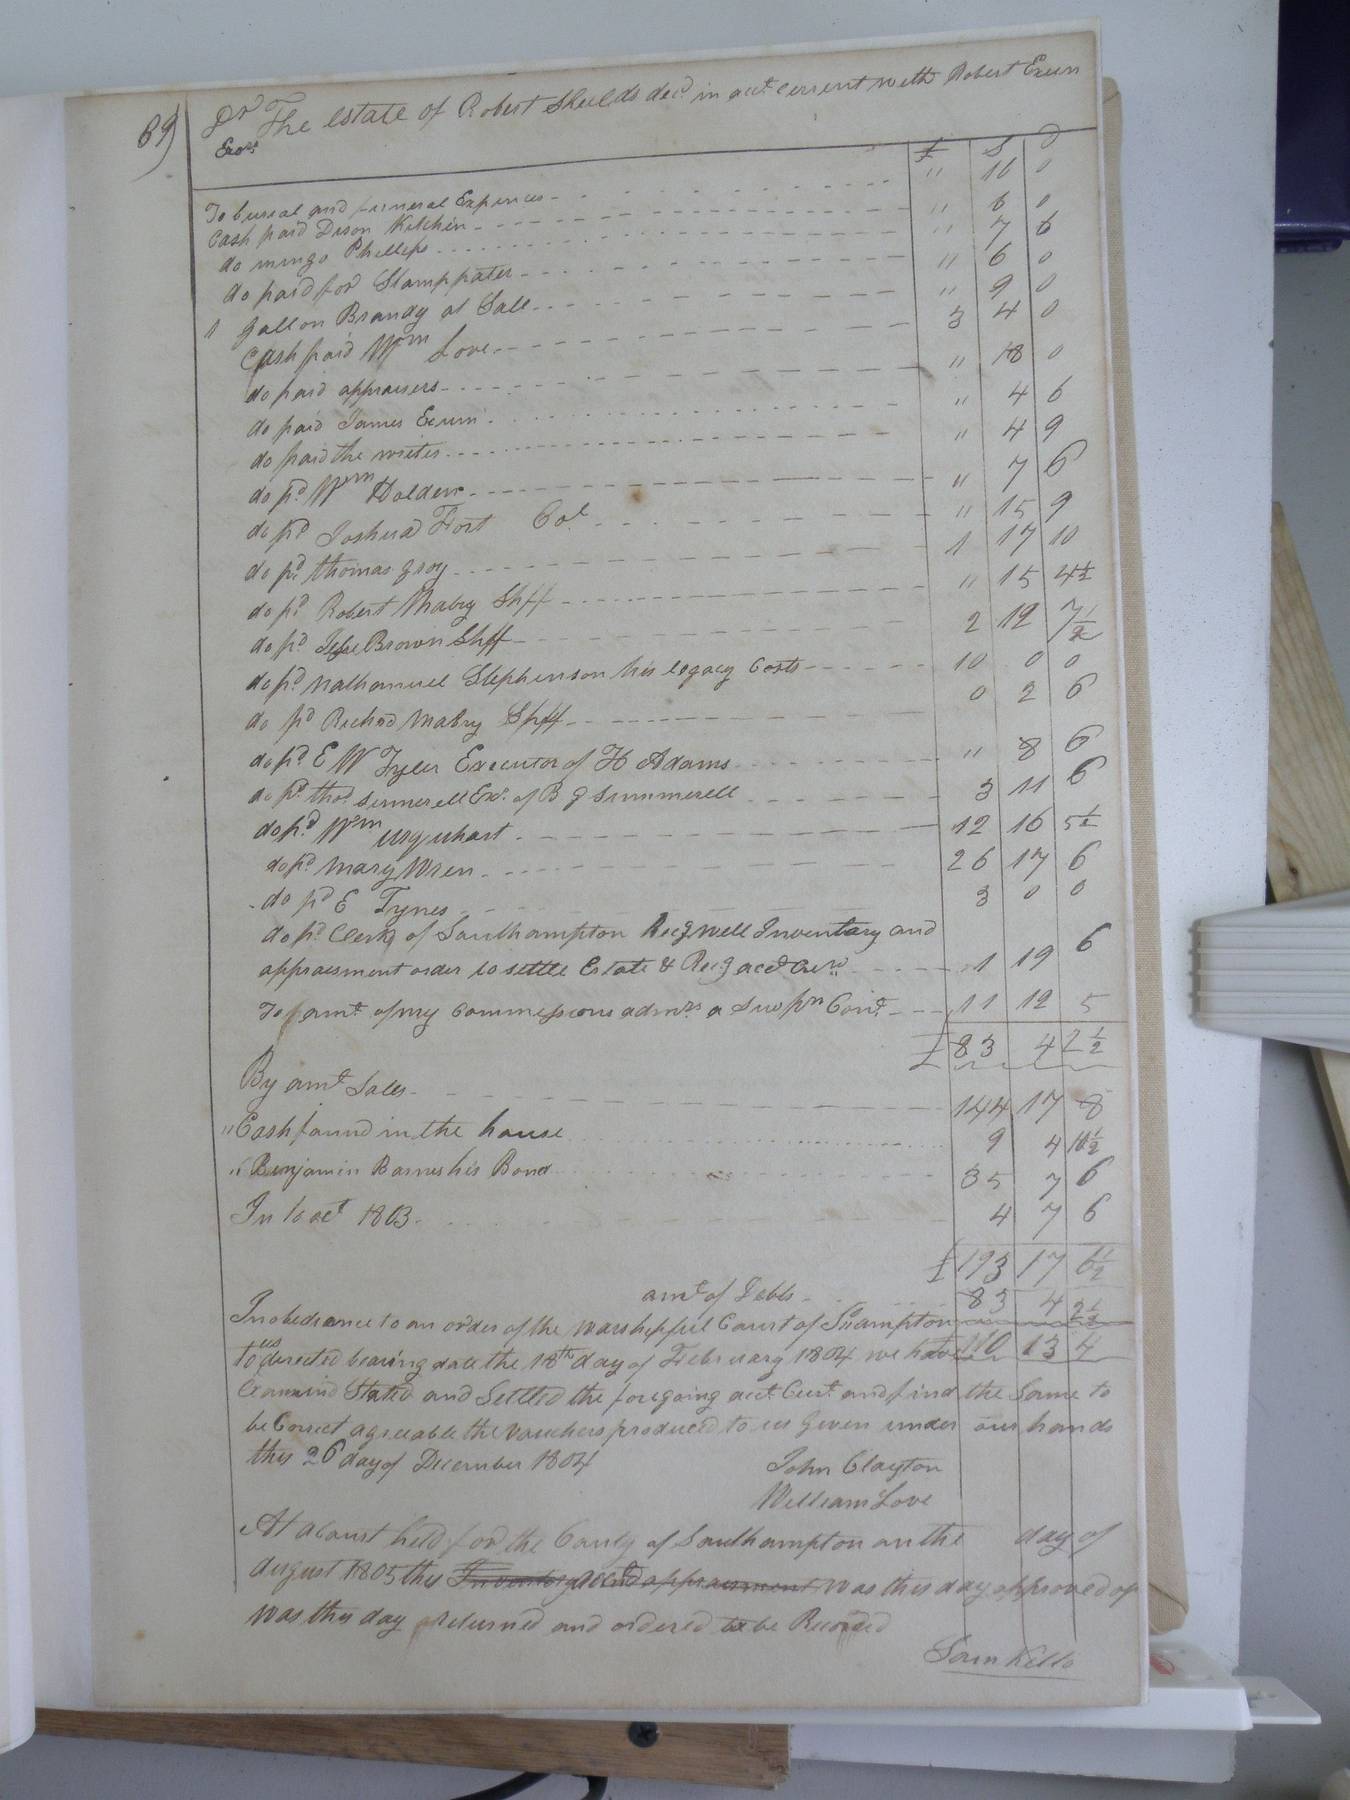 69)
Dr The estate of Robert Sheilds decd in acct current with Robert Exum
Exor
£ S D
To burial and funeral Expences " 16 0
Cash paid Dison Kitchin " 6 0
do mingo Phillips " 7 6
do paid for Stamp pater " 6 0
1 gallon Brandy at Sale " 9 0
Cash paid Wm Love 3 4 0
do paid appraisers " 18 0
do paid James Exum " 4 6
do paid the writer " 4 9
do pd Wm Holden " 7 6
do pd Joshua Fort Col " 15 9
do pd thomas gray 1 17 10
do pd Robert Mabry Shff " 15 4½
do pd Brown Shff 2 12 7½
do pd Nathaniel Stephenson his legacy Costs 10 0 0
do pd Richd Mabry Shff 0 2 6
do pd E W Tyler Executor of H Adams " 8 6
do pd thos Summerell Exr of B g Summerell 3 11 6
do pd Wm Urquhart 12 16 5½
do pd Mary Wren 26 17 6
do pd E Tynes 3 0 0
do pd Clerk of Southampton Recg Will Inventary and
appraisment order to settle Estate & Recg acct 1 19 6
To amt of my Commissions 11 12 5
£ 83 4 2½
By amt Sales 144 17 8
" Cash found in the house 9 4 10½
" Benjamin Barnes his Bond 35 7 6
In to act 1803 4 7 6
£ 193 17 6½
amt of Debts 83 4 2½
In obediance to an order of the Warshipfull Court of Soampton
to us directed bearing date the 18th day of February 1804 we have 110 13 4
Examind Stated and Settled the foregoing acct Curt and find the Same to
be Correct agreeable the vouchers produced to us Given under our hands
this 26 day of December 1804 John Clayton
William Love
At a Court held for the County of Southampton on the day of
August 1805 this Inventory and appraisment was this day approved of
was this day Returned and ordered to be Recorded
Sam Kello